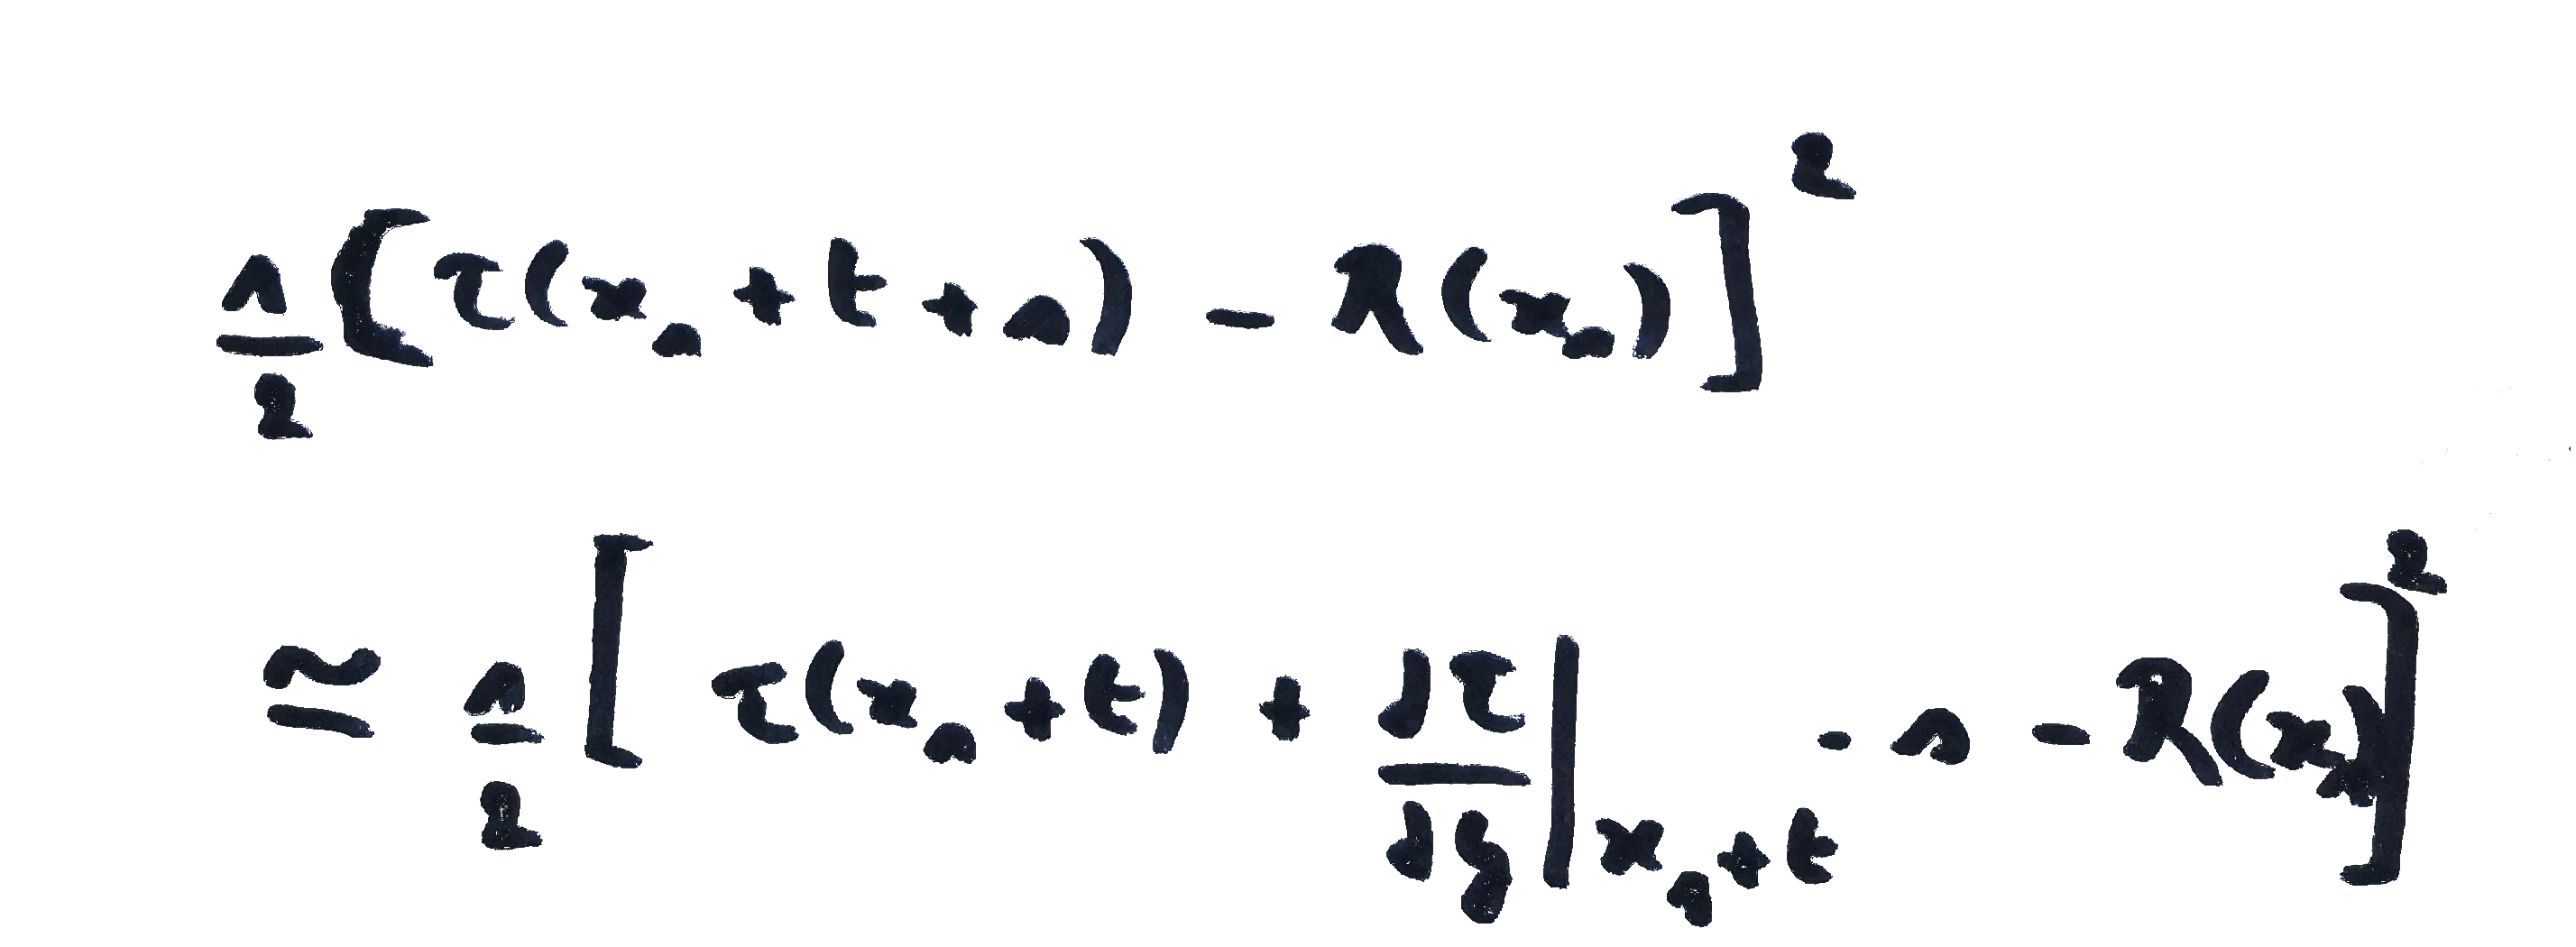 1/2 [τ(x_s + t + s) − R(x_s)]^2
≃ 1/2 [τ(x_s + t) + dτ/dy |_{x_s + t} · s − R(x_s)]^2